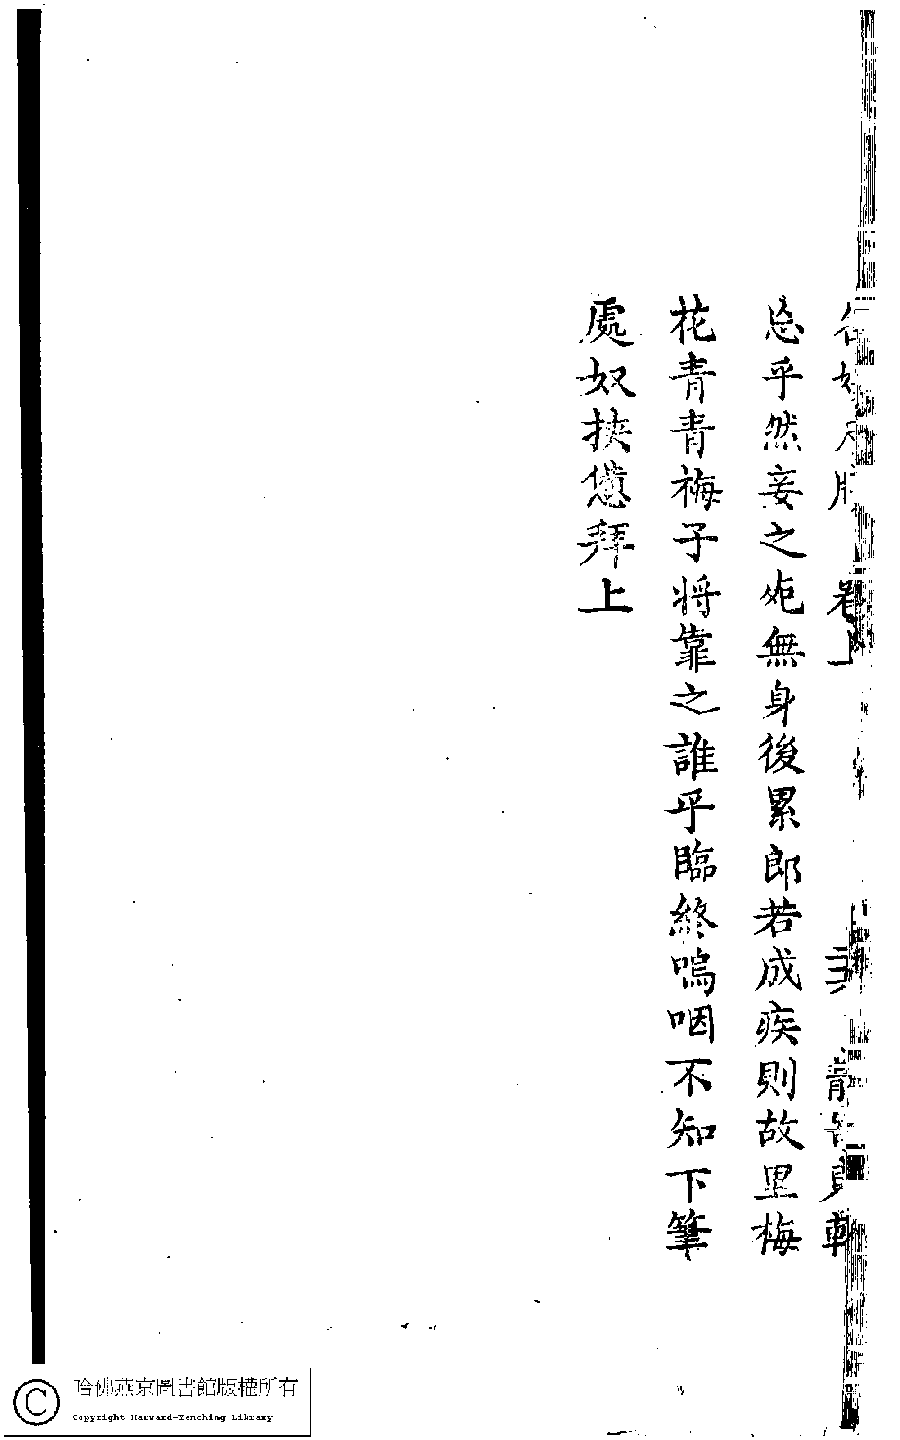 卷上
忘乎然妾之死無身後累郎若成疾則故里梅
花青青梅子將靠之誰乎臨終嗚咽不知下筆
處奴挾愆拜上
哈佛燕京圖書館版權所有
Copyright Harvard-Yenching Library